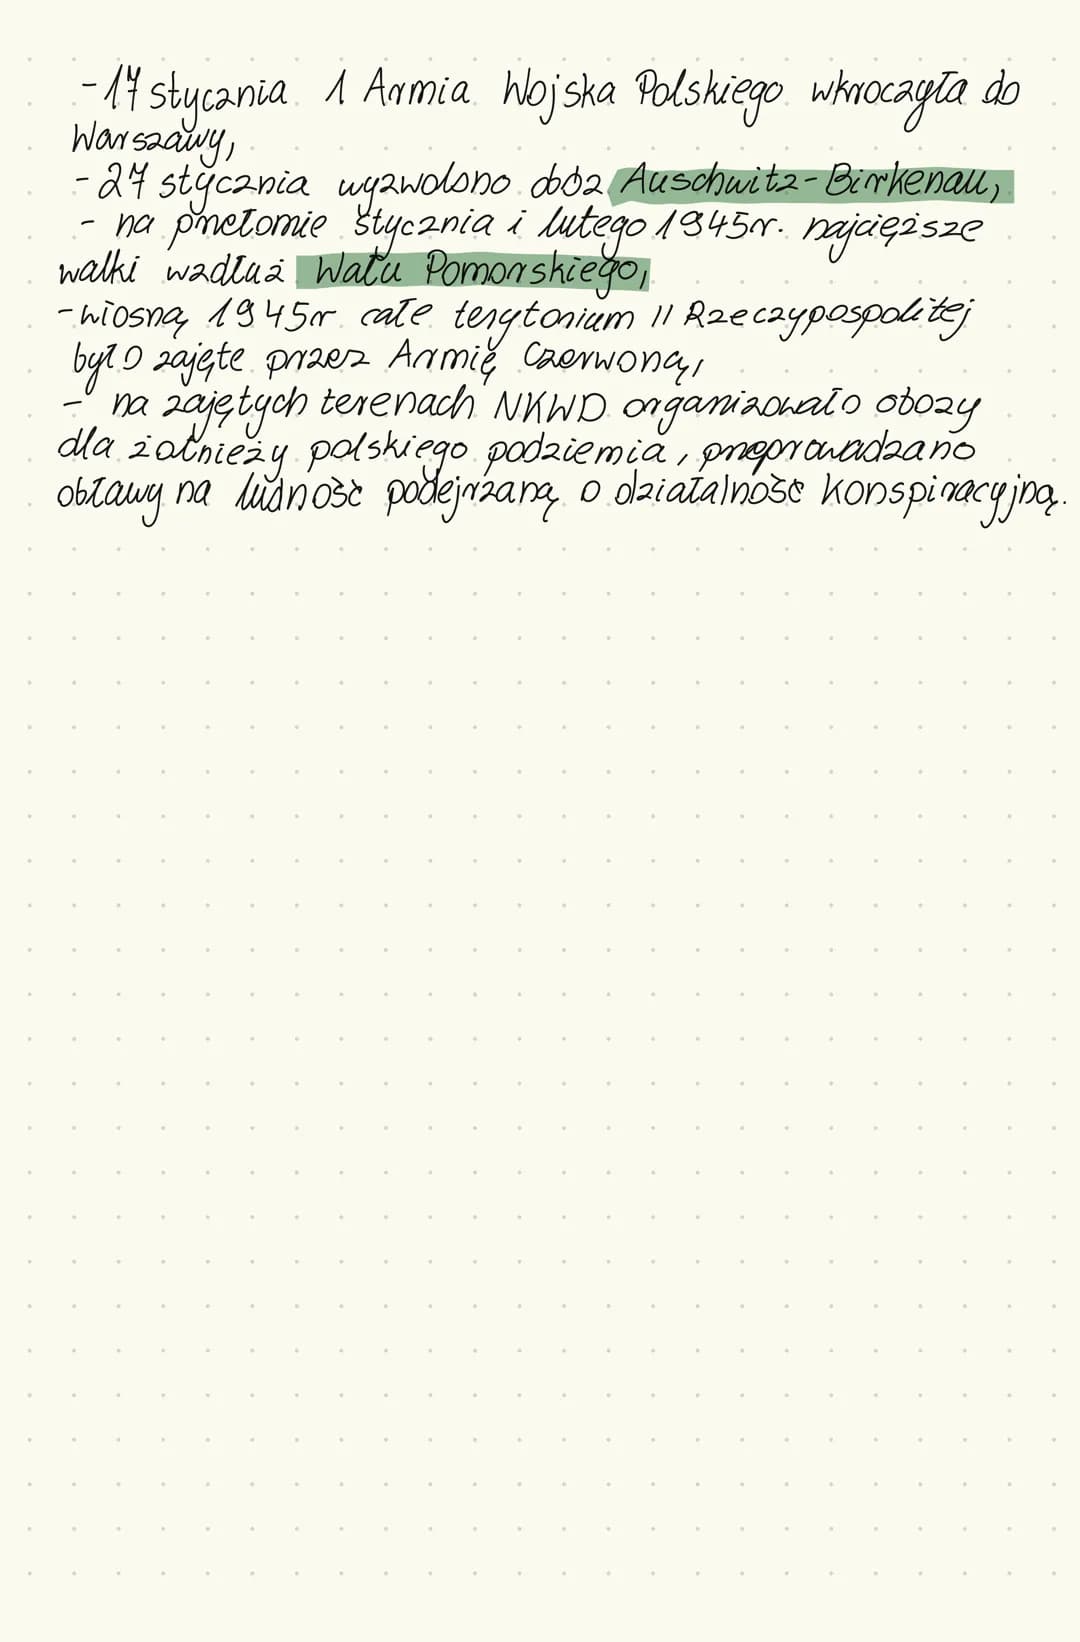 - 17 stycznia 1 Armia Wojska Polskiego wkroczyła do
Warszawy,
- 27 stycznia wyzwolono obóz Auschwitz-Birkenau,
- na przełomie stycznia i lutego 1945r. najcięższe
walki wzdłuż Wału Pomorskiego,
- wiosną 1945r całe terytorium II Rzeczypospolitej
było zajęte przez Armię Czerwoną,
- na zajętych terenach NKWD organizowało obozy
dla żołnieży polskiego podziemia, przeprowadzano
obławy na ludność podejrzaną o działalność konspiracyjną.